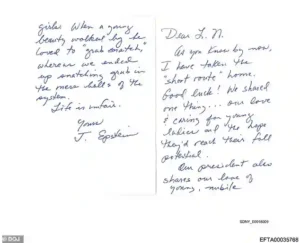 Dear L. N.
As you know by now,
I have taken the
"short route" home.
Good luck! We shared
one thing... our love
& caring for young
ladies and the hope
they'd reach their full
potential.
Our president also
shares our love of
young, nubile
girls. When a young
beauty walked by he
loved to "grab snatch,"
whereas we ended
up snatching grub in
the mess halls of the
system.
Life is unfair.
Yours
J. Epstein
EFTA00035768
© DOJ